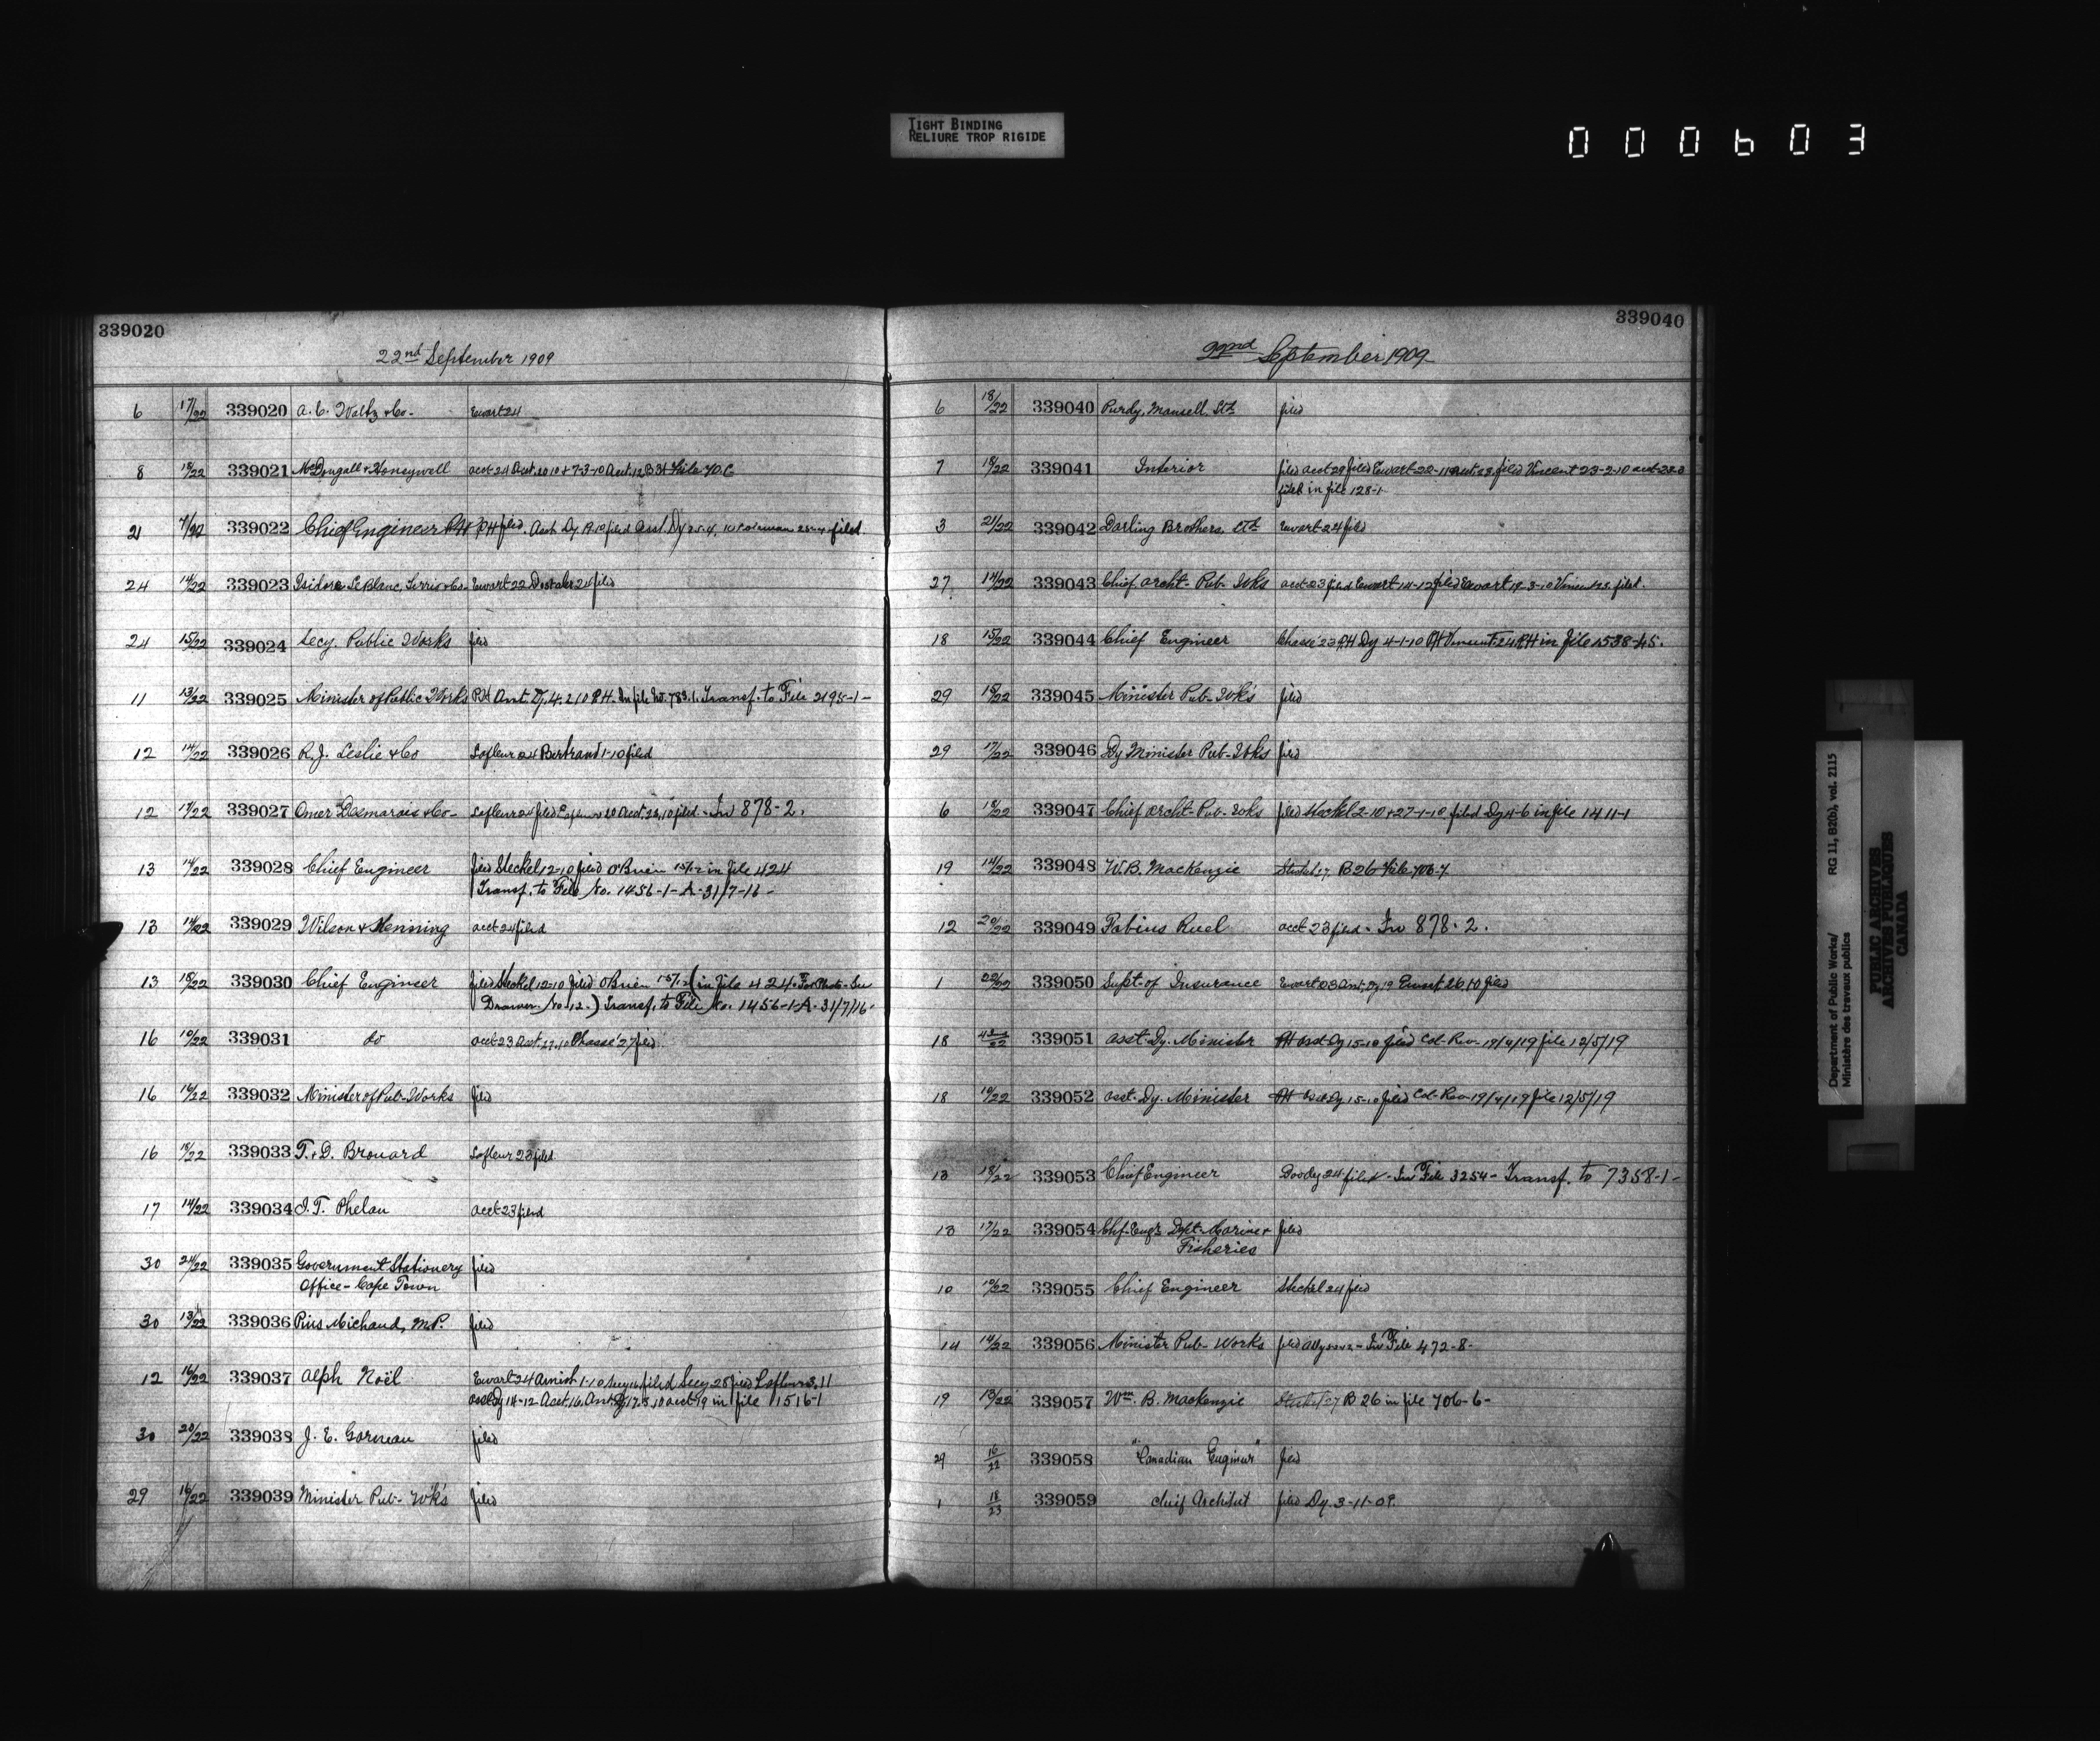 TIGHT BINDING
RELIURE TROP RIGIDE
000603
339020
22nd September 1909
6 17/22 339020 A. C. Waltz & Co- Ewart 24
8 18/22 339021 McDougall & Honeywell acct 24 File
21 339022 Chief Engineer PH PH filed. filed
24 14/22 339023 Isidore LeBlanc, & Co- Ewart 22 24 filed
24 15/22 339024 Secy. Public Works filed
11 13/22 339025 Minister of Public Works In file No. 783.1. Transf. to File 2195-1-
12 14/22 339026 R. J. Leslie & Co Lafleur 24 Bertrand 1-10 filed
12 17/22 339027 Omer Desmarais & Co- Lafleur 24 filed filed - In 878-2.
13 14/22 339028 Chief Engineer filed Steckel 12-10 filed O'Brien in file 424
Transf. to File No. 1456-1-A-31/7-16-
13 14/22 339029 Wilson & acct 24 filed
13 18/22 339030 Chief Engineer filed Steckel 12-10 filed O'Brien (in file 424. For Photo-See
Drawer No-12-) Transf. to File No. 1456-1-A-31/7/16-
16 19/22 339031 do acct 23 Chassé 27 filed
16 16/22 339032 Minister of Pub-Works filed
16 18/22 339033 T. & D. Brouard Lafleur 23 filed
17 14/22 339034 Phelan acct 23 filed
30 21/22 339035 Government Stationery filed
Office - Cape Town
30 13/22 339036 Pius Michaud, M.P. filed
12 16/22 339037 Alph Noël Ewart 24 filed Secy 28 filed Lafleur 3.11
14-12 acct 19 in file 1516-1
30 20/22 339038 J. E. Gorman filed
29 16/22 339039 Minister Pub- Wk's filed
339040
22nd September 1909
6 18/22 339040 Purdy, Mansell, Ltd filed
7 18/22 339041 Interior filed acct 29 filed Ewart filed Vincent 23-2-10
filed in file 128-1-
3 21/22 339042 Darling Brothers, Ltd Ewart 24 filed
27 14/22 339043 Chief Archt- Pub- Wks acct 23 filed Ewart 14-12 filed Ewart 19-3-10 filed.
18 15/22 339044 Chief Engineer Chassé 23 PH Dy 4-1-10 PH Vincent 24 PH in file 1538-45.
29 18/22 339045 Minister Pub- Wk's filed
29 17/22 339046 Dy Minister Pub- Wks filed
6 18/22 339047 Chief Archt- Pub- Wks filed Steckel 2-10 & 27-1-10 filed Dy 4-6 in file 1411-1
19 14/22 339048 W. B. MacKenzie Steckel 27 B 26 File 706-7
12 20/22 339049 Fabius Ruel acct 23 filed - In 878-2.
1 22/22 339050 Supt- of Insurance Ewart 23 Ewart 26.10 filed
18 339051 Asst- Dy. Minister PH Asst Dy 15-10 filed Col-Rev-19/4/19 file 12/5/19
18 18/22 339052 Asst- Dy. Minister PH Asst Dy 15-10 filed Col-Rev-19/4/19 file 12/5/19
13 18/22 339053 Chief Engineer Doody 24 filed - In File 3254 - Transf. to 7358-1-
13 17/22 339054 Chf-Engr. Dept- Marine & filed
Fisheries
10 339055 Chief Engineer Steckel 24 filed
14 14/22 339056 Minister Pub- Works filed - In File 472-8-
19 13/22 339057 Wm. B. Mackenzie Steckel 27 B 26 in file 706-6-
29 16/22 339058 "Canadian Engineer" filed
1 18/23 339059 Chief Architect filed Dy. 3-11-09.
Department of Public Works/ RG 11, B2(b), vol. 2115
Ministère des travaux publics
PUBLIC ARCHIVES
ARCHIVES PUBLIQUES
CANADA